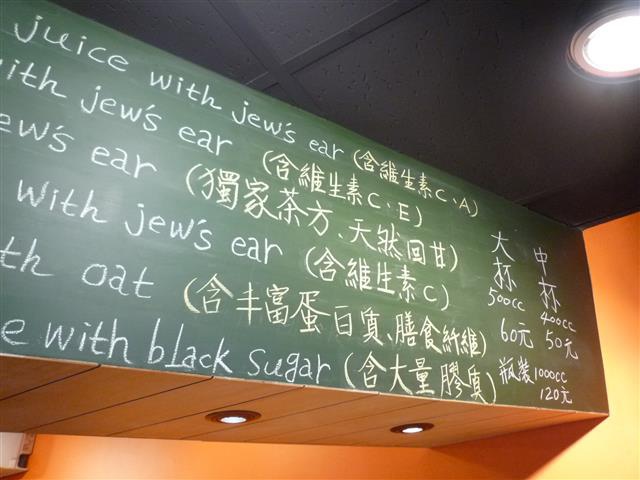 juice with jew's ear (含維生素C、A)
with jew's ear (含維生素C、E)
ew's ear (獨家茶方、天然回甘)
with jew's ear (含維生素C)
th oat (含丰富蛋白質、膳食纖維)
e with black sugar (含大量膠質)
大杯
500cc
60元
中杯
400cc
50元
瓶裝1000cc
120元